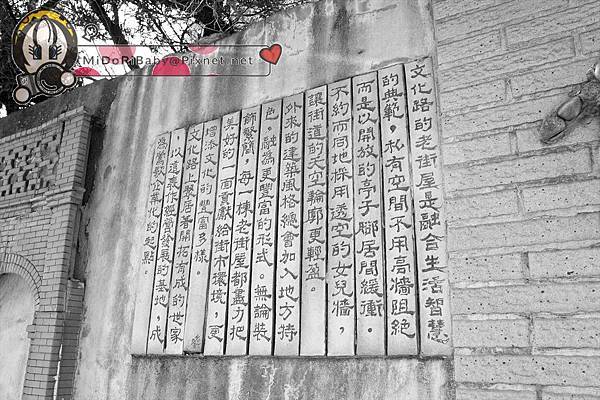 MiDoRiBaby@Pixnet.net
文化路的老街屋是融合生活智慧
的典範，私有空間不用高牆阻絕
而是以開放的亭子腳居間緩衝。
不約而同地採用透空的女兒牆，
讓街道的天空輪廓更輕盈。
外來的建築風格總會加入地方特
色，融為更豐富的形式。無論裝
飾繁簡，每一棟老街屋都盡力把
美好的一面貢獻給街市環境，更
增添文化的豐富多樣。
文化路上聚居著開拓有成的世家
以這裡作經營發展的基地，成
為鶯歌企業化的起點。